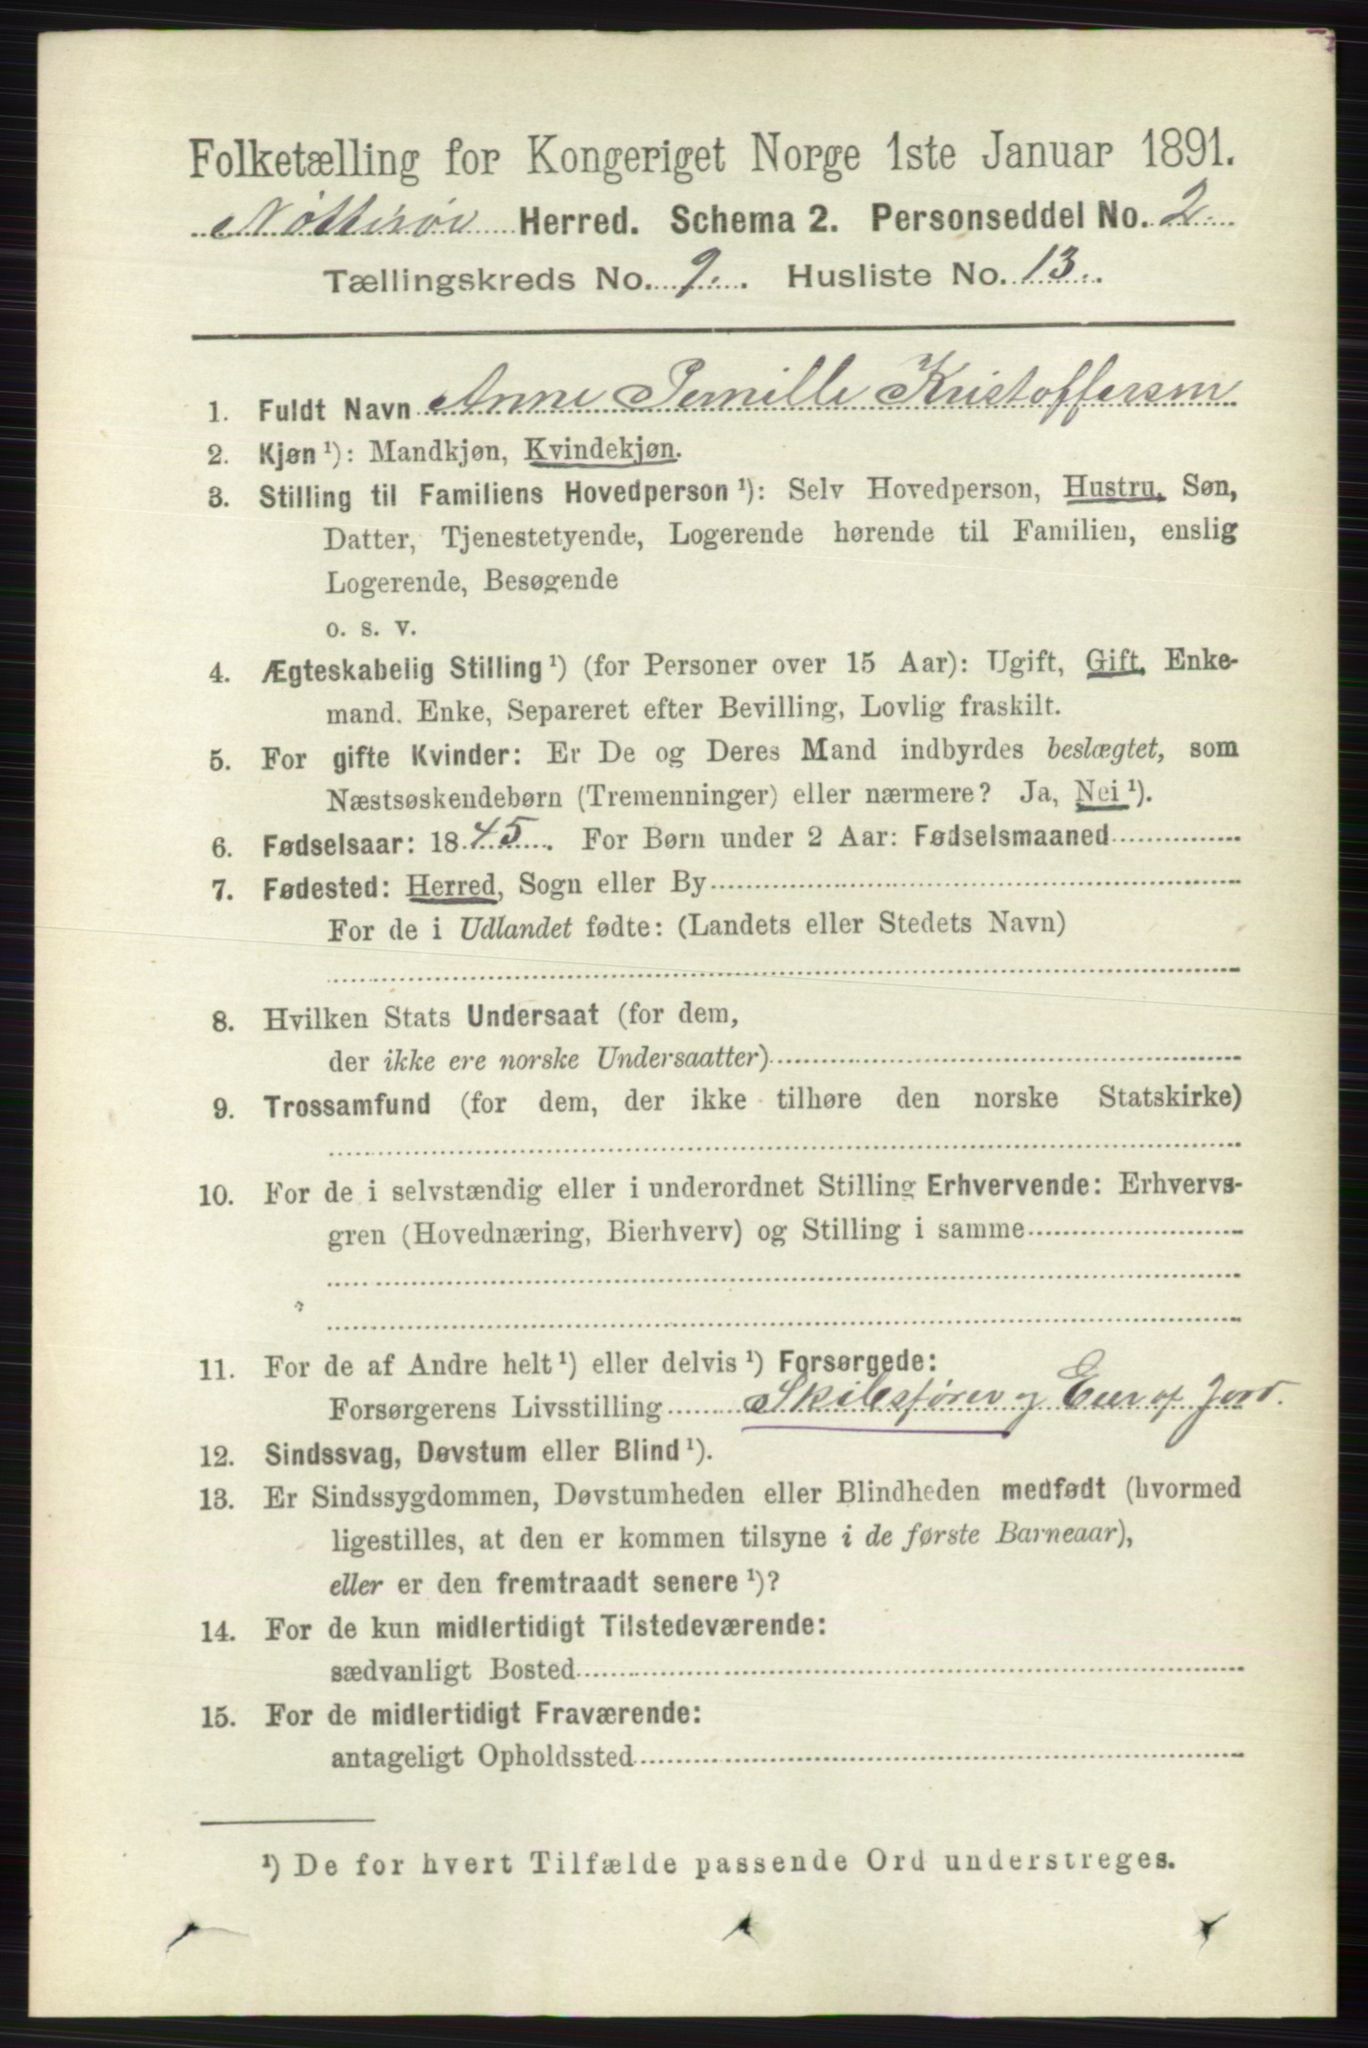 Folketælling for Kongeriget Norge 1ste Januar 1891.
Nötterøe Herred. Schema 2. Personseddel No. 2.
Tællingskreds No. 9. Husliste No. 13.
1. Fuldt Navn Anne Pernille Kristoffersen
2. Kjøn ¹): Mandkjøn, Kvindekjøn.
3. Stilling til Familiens Hovedperson ¹): Selv Hovedperson, Hustru, Søn,
Datter, Tjenestetyende, Logerende hørende til Familien, enslig
Logerende, Besøgende
o. s. v.
4. Ægteskabelig Stilling ¹) (for Personer over 15 Aar): Ugift, Gift, Enke-
mand. Enke, Separeret efter Bevilling, Lovlig fraskilt.
5. For gifte Kvinder: Er De og Deres Mand indbyrdes beslægtet, som
Næstsøskendebørn (Tremenninger) eller nærmere? Ja, Nei ¹).
6. Fødselsaar: 1845. For Børn under 2 Aar: Fødselsmaaned
7. Fødested: Herred, Sogn eller By
For de i Udlandet fødte: (Landets eller Stedets Navn)
8. Hvilken Stats Undersaat (for dem,
der ikke ere norske Undersaatter)
9. Trossamfund (for dem, der ikke tilhøre den norske Statskirke)
10. For de i selvstændig eller i underordnet Stilling Erhvervende: Erhvervs-
gren (Hovednæring, Bierhverv) og Stilling i samme
11. For de af Andre helt ¹) eller delvis ¹) Forsørgede:
Forsørgerens Livsstilling Skibsfører og Eier af Jord.
12. Sindssvag, Døvstum eller Blind ¹).
13. Er Sindssygdommen, Døvstumheden eller Blindheden medfødt (hvormed
ligestilles, at den er kommen tilsyne i de første Barneaar),
eller er den fremtraadt senere ¹)?
14. For de kun midlertidigt Tilstedeværende:
sædvanligt Bosted
15. For de midlertidigt Fraværende:
antageligt Opholdssted
¹) De for hvert Tilfælde passende Ord understreges.